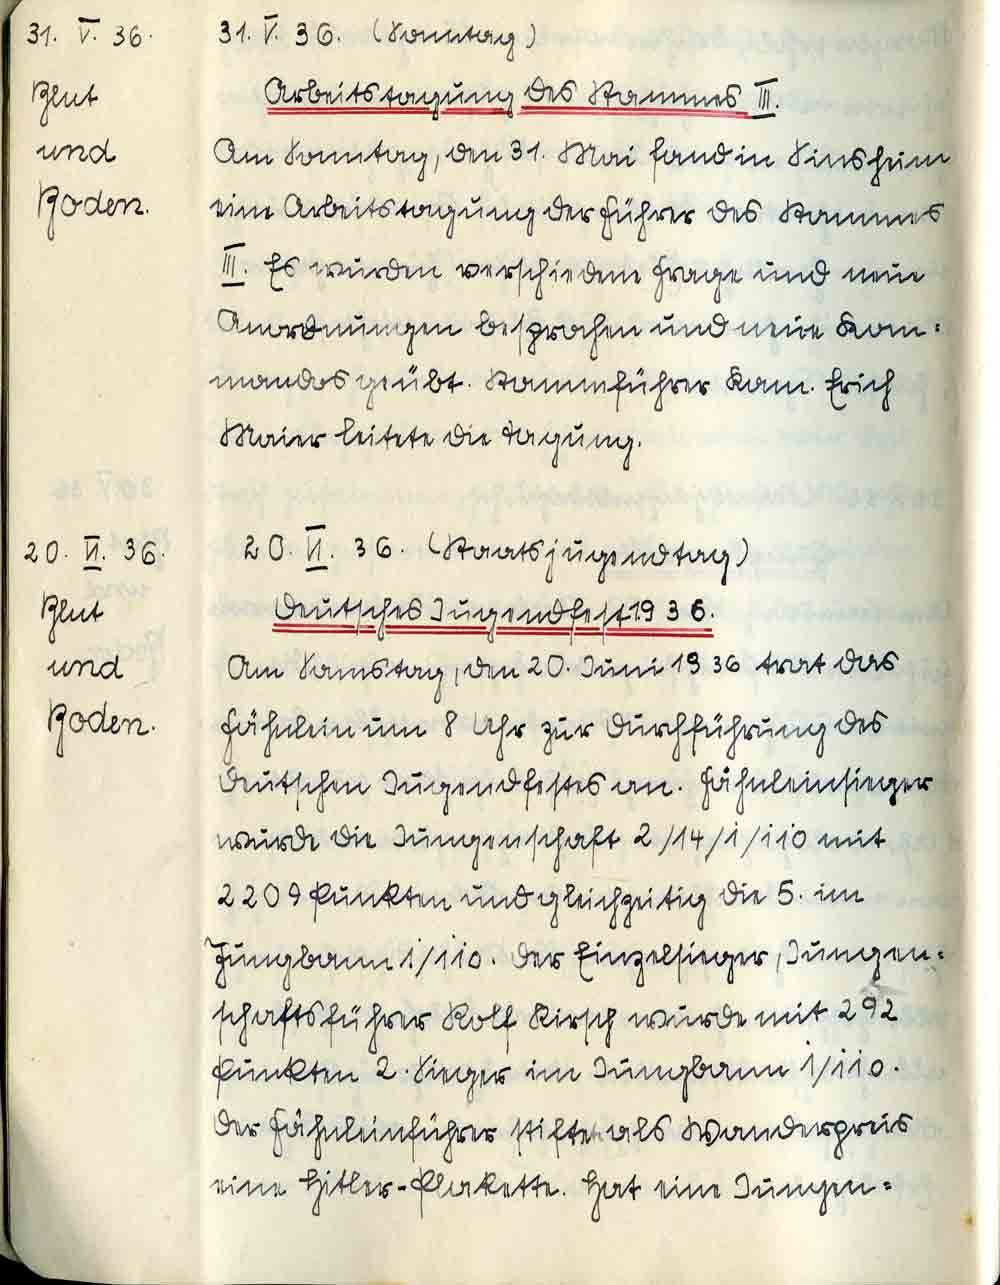 31. V. 36.
31. V. 36. (Sonntag)
Blut
und
Boden.
Arbeitstagung des Stammes III.
Am Sonntag, den 31. Mai fand in Sinsheim
eine Arbeitstagung der Führer des Stammes
III. Es wurden verschiedene Frage und neue
Anordnungen besprochen und neue Kom=
mandos geübt. Stammführer Kam. Erich
Maier leitete die Tagung.
20. VI. 36.
20. VI. 36. (Staatsjugendtag)
Blut
und
Boden.
Deutsches Jugendfest 1936.
Am Samstag, den 20. Juni 1936 trat das
Fähnlein um 8 Uhr zur Durchführung des
Deutschen Jugendfestes an. Fähnleinsieger
wurde die Jungenschaft 2/14/1/110 mit
2209 Punkten und gleichzeitig die 5. im
Jungbann 1/110. Der Einzelsieger, Jungen=
schaftsführer Rolf Kirsch wurde mit 292
Punkten 2. Sieger im Jungbann 1/110.
Der Fähnleinführer stiftet als Wanderpreis
eine Hitler-Plakette. Hat eine Jungen=